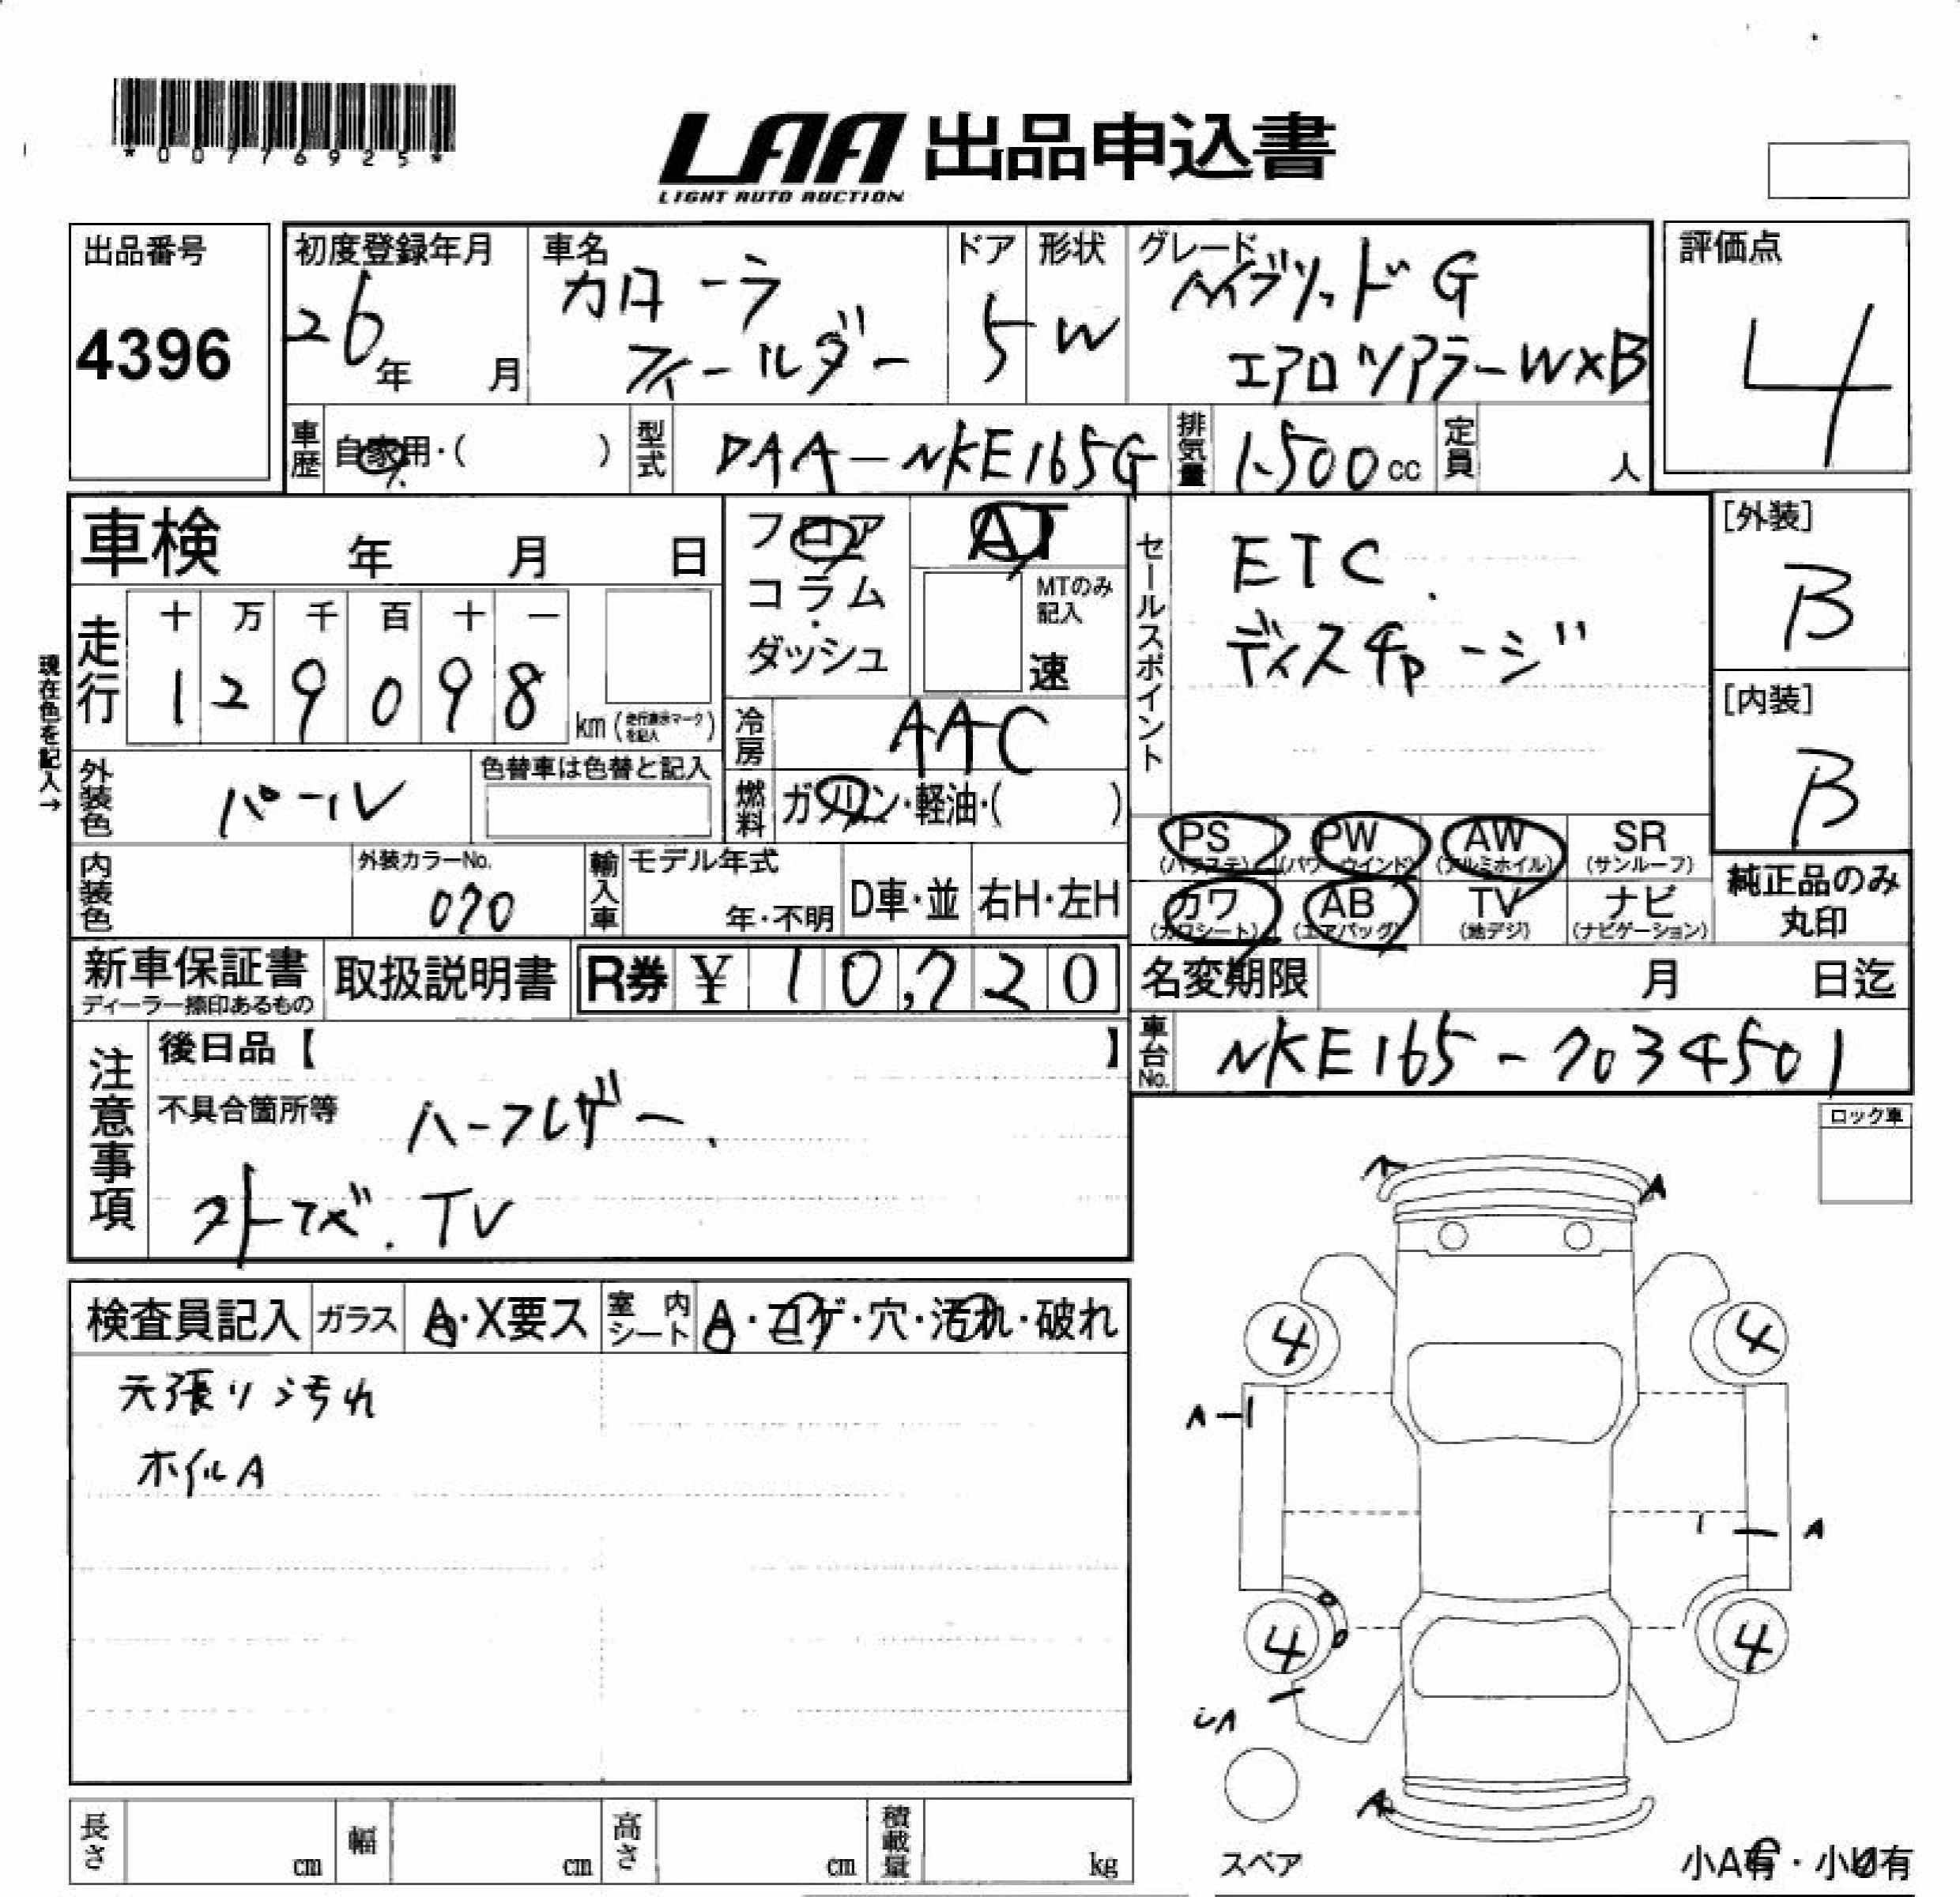 *00776925*
LAA 出品申込書
LIGHT AUTO AUCTION
出品番号
4396
初度登録年月
26年 月
車名
カローラ
フィールダー
ドア
5
形状
W
グレード
ハイブリッド G
エアロツアラーW×B
評価点
4
車歴 自家用・( )
型式 DAA-NKE165G
排気量 1.500cc
定員 人
車検 年 月 日
走行
十 万 千 百 十 一
1 2 9 0 9 8
km(走行表示マークを記入)
現在色を記入→
フロア
コラム
ダッシュ
AT
MTのみ
記入
速
冷房 AAC
燃料 ガソリン・軽油・( )
セールスポイント
ETC.
ディスチャージ
[外装]
B
[内装]
B
外装色 パール
色替車は色替と記入
内装色
外装カラーNo.
070
輸入車
モデル年式
年・不明
D車・並
右H・左H
PS (パワステ)
PW (パワーウインド)
AW (アルミホイル)
SR (サンルーフ)
カワ (カワシート)
AB (エアバッグ)
TV (地デジ)
ナビ (ナビゲーション)
純正品のみ
丸印
新車保証書
ディーラー捺印あるもの
取扱説明書
R券 ¥ 10,720
名変期限 月 日迄
車台No. NKE165-7034501
注意事項
後日品【 】
不具合箇所等 ハーフレザー.
TV
ロック車
検査員記入
ガラス A・X要ス
室内シート A・コゲ・穴・汚れ・破れ
天張り汚れ
ホイルA
A
A
4
4
A
A
4
4
A
スペア
小A有・小U有
長さ cm
幅 cm
高さ cm
積載量 kg